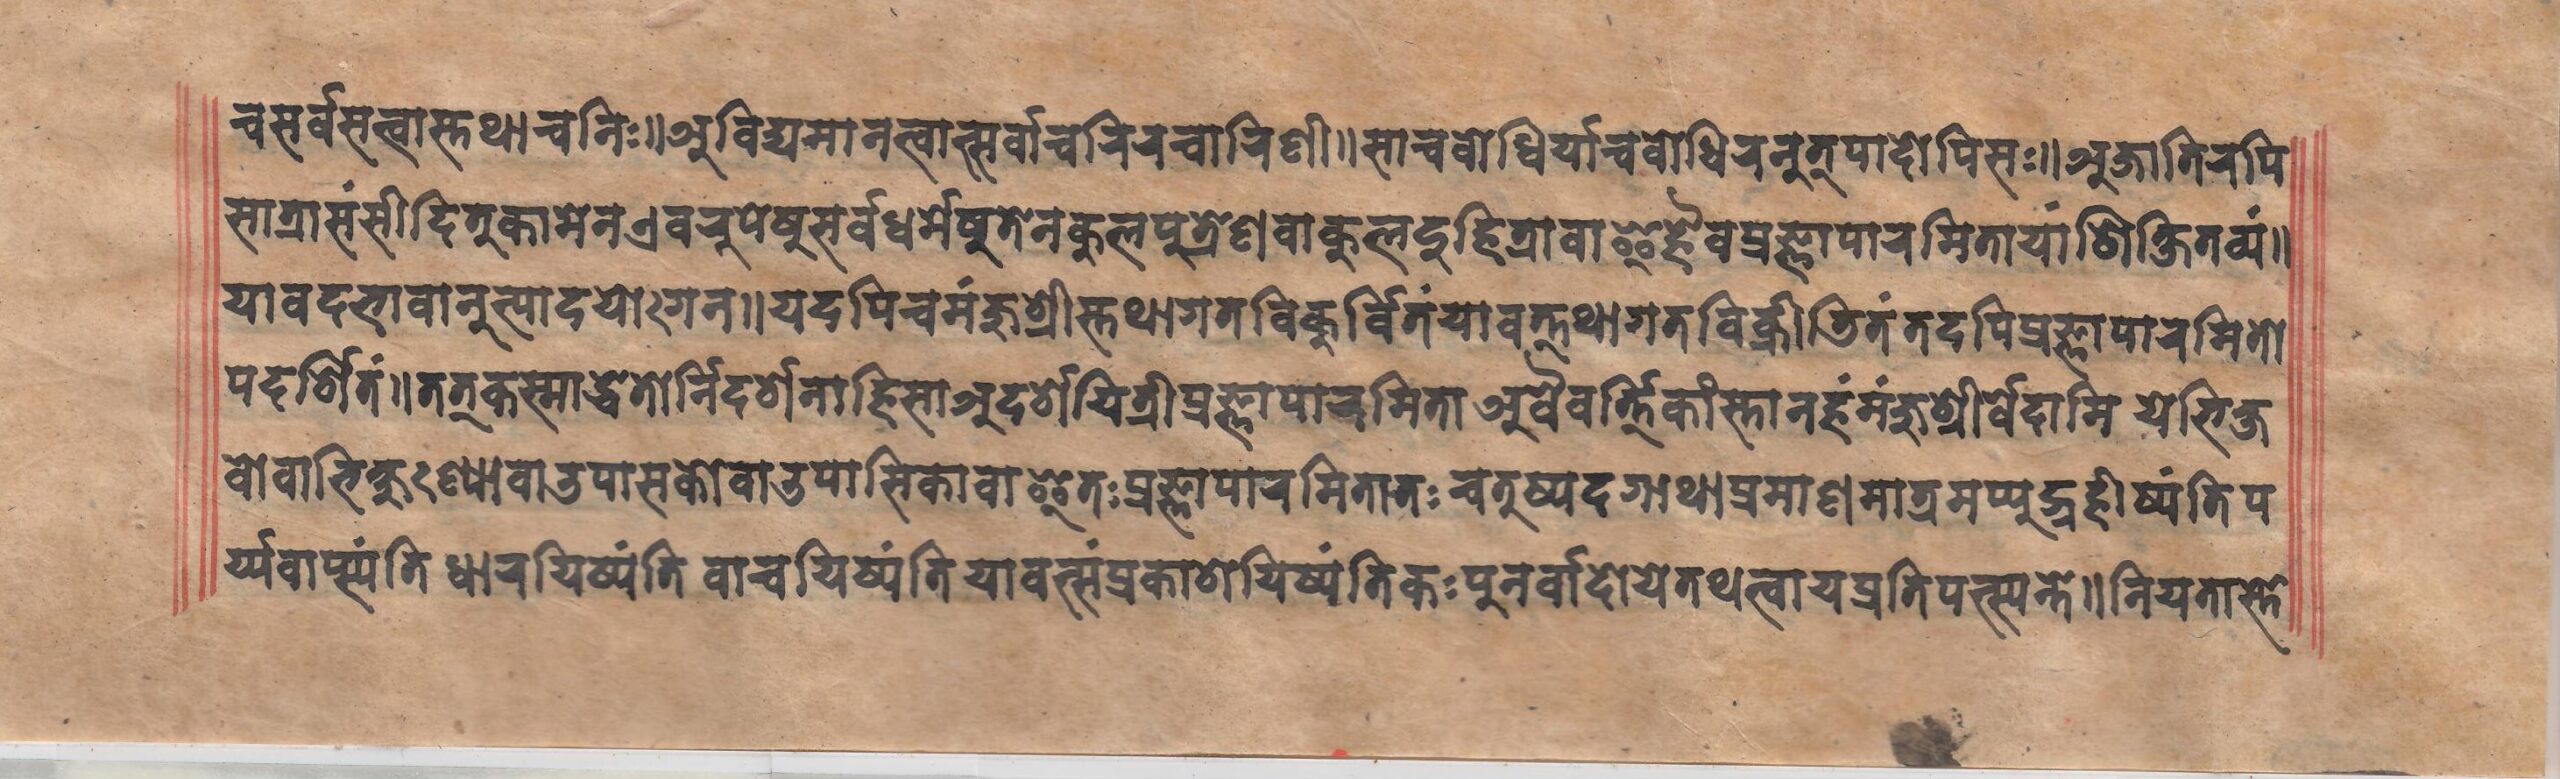 चसर्वसत्वास्तथाचनिः॥अविद्यमानत्वात्सर्वाचरिरचारिणी॥साचवोधिर्याचवोधिरनुत्पादोपिसः॥अजातिरपि
सात्रासंसीदितुकामेनएवरुपेषुसर्वधर्मेषुतेनकुलपुत्रेणवाकुलदुहित्रावाइहैवप्रज्ञापारमितायांशिक्षितव्यं॥
यावदभावानुत्पादयोःगन॥यदपिचमंजुश्रीस्तथागतविकुर्वितंयावत्तथागतविक्रीडितंतदपिप्रज्ञापारमितो
पदर्शितं॥तत्कस्माद्धेतोर्निदर्शनाहिसाअदर्शयित्रीप्रज्ञापारमिता अवैवर्त्तिकांस्तानहंमंजुश्रीर्वदामि येभिक्ष
वोवाभिक्षुःण्यावाउपासकोवाउपासिकावाइतःप्रज्ञापारमितातः चतुष्पदगाथाप्रमाणमात्रमप्युद्ग्रहीष्यंतिप
र्य्यवाप्स्यंति धारयिष्यंति वाचयिष्यंति यावत्संप्रकाशयिष्यंतिकःपुनर्वादोयेतथत्वायप्रतिपत्स्यन्ते॥नियतास्ते